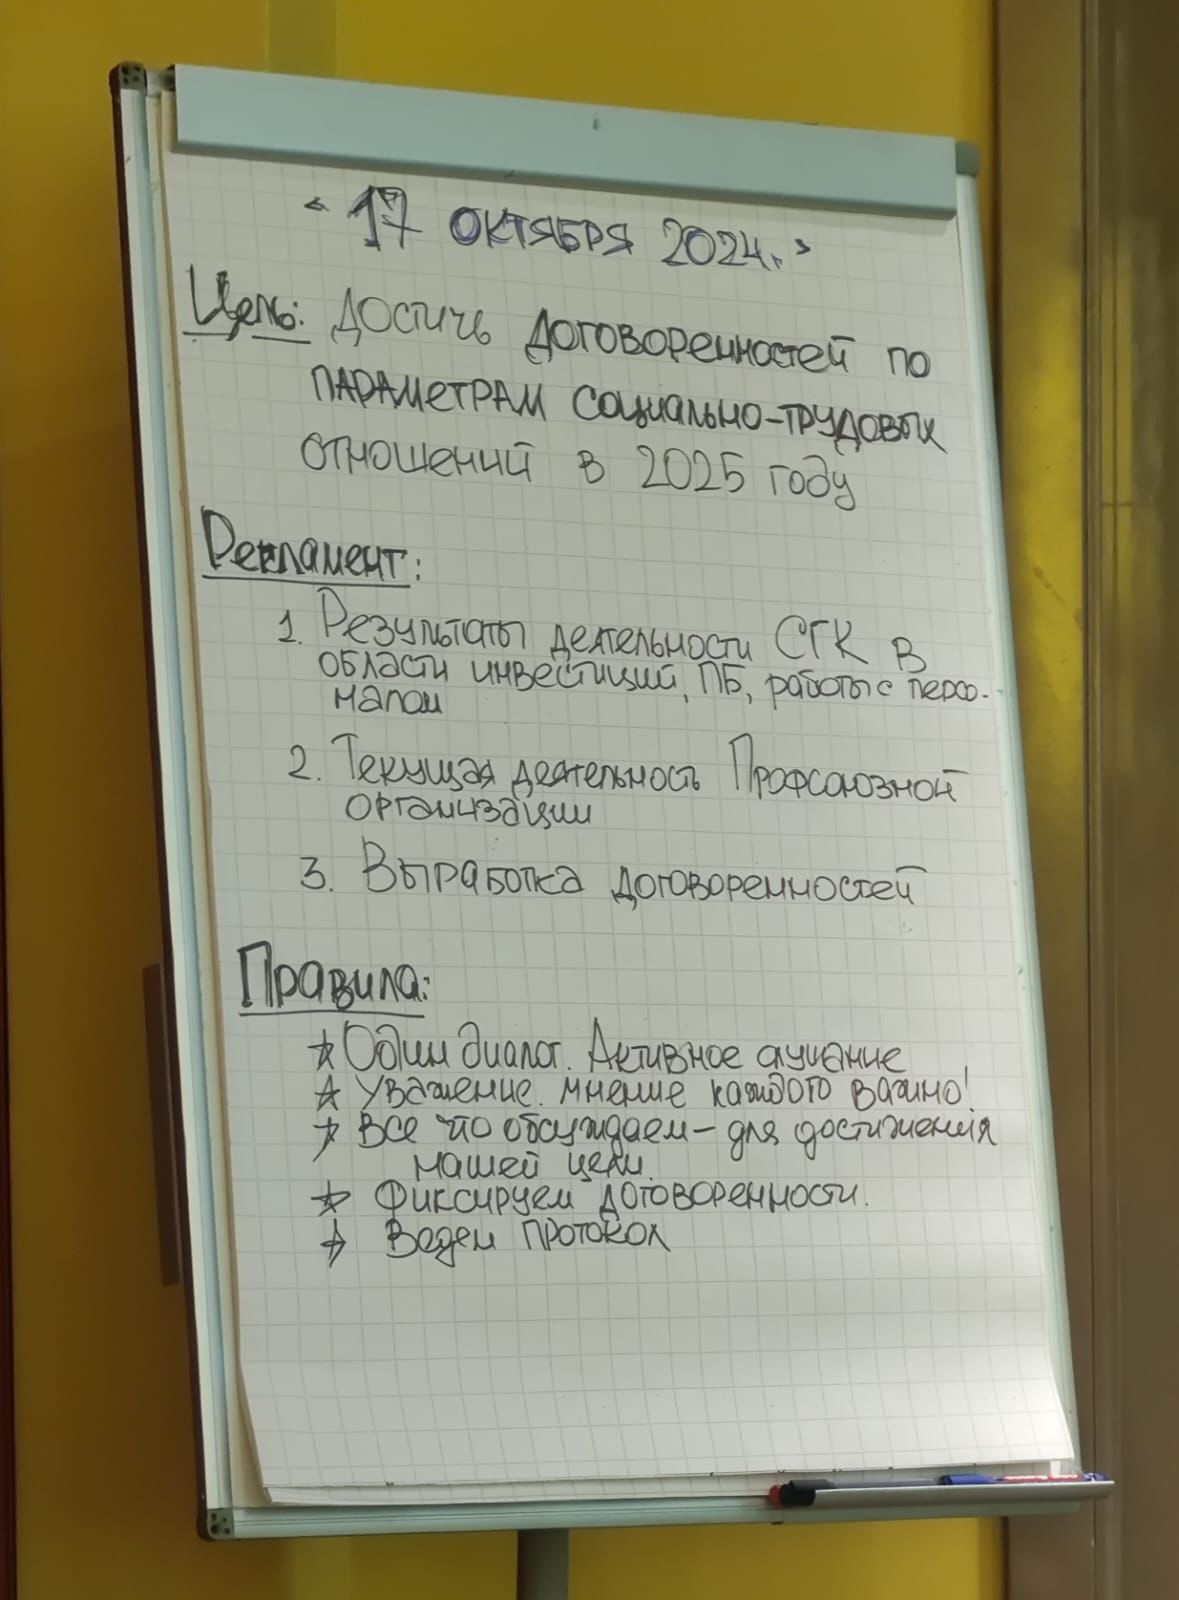 "17 ОКТЯБРЯ 2024г."
Цель: Достичь договоренностей по
параметрам социально-трудовых
отношений в 2025 году
Регламент:
1. Результаты деятельности СГК в
области инвестиций, ПБ, работы с персо-
налом
2. Текущая деятельность Профсоюзной
организации
3. Выработка договоренностей
Правила:
* Один диалог. Активное слушание
* Уважение. Мнение каждого важно!
* Все что обсуждаем – для достижения
нашей цели.
* Фиксируем договоренности.
* Ведем протокол